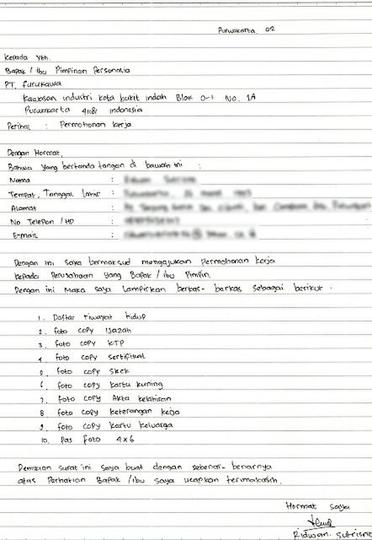 Purwakarta 02
Kepada Yth.
Bapak / Ibu Pimpinan Personalia
PT. Furukawa
Kawasan industri kota bukit indah Blok D-1 No. 1A
Purwakarta 41181 Indonesia
Perihal : Permohonan kerja
Dengan Hormat,
Bahwa yang bertanda tangan di bawah ini :
Nama :
Tempat, Tanggal Lahir :
Alamat :
No Telepon / HP :
E-mail :
Dengan ini saya bermaksud mengajukan Permohonan kerja
kepada Perusahaan yang Bapak / ibu Pimpin.
Dengan ini maka saya lampirkan berkas-berkas sebagai berikut .
1. Daftar riwayat hidup
2. foto copy ijazah
3. foto copy KTP
4 foto copy sertifikat
5. foto copy skck
6. foto copy kartu kuning
7. foto copy Akta kelahiran
8 foto copy keterangan kerja
9. foto copy kartu keluarga
10. Pas foto 4x6
Demikian surat ini saya buat dengan sebenar-benarnya
atas Perhatian Bapak / ibu saya ucapkan terimakasih.
Hormat saya
Ridwan Sutrisno